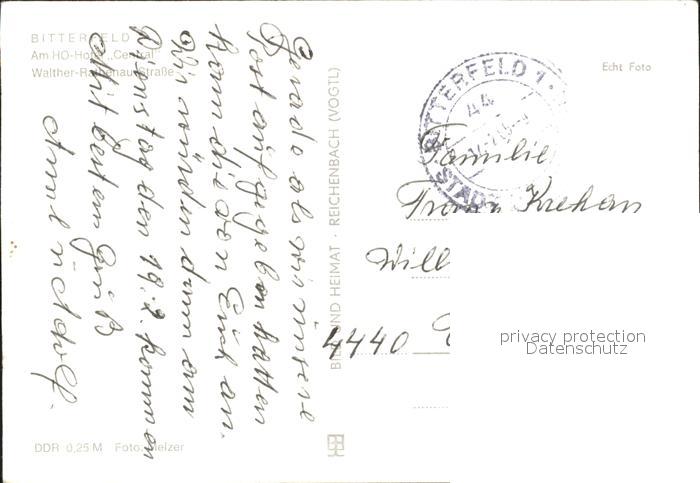 BITTERFELD
Am HO-Hotel „Central"
Walther-Rathenau-Straße
Gerade als wir unsere
Post aufgegeben hatten
kam die von Euch an.
Wir würden dann am
Dienstag den 19.7. kommen
Mit bestem Gruß
DDR 0,25 M Foto: Melzer
BILD UND HEIMAT · REICHENBACH (VOGTL)
Echt Foto
BITTERFELD 1
44
Familie
Franz Krehan
Will
4440
privacy protection
Datenschutz